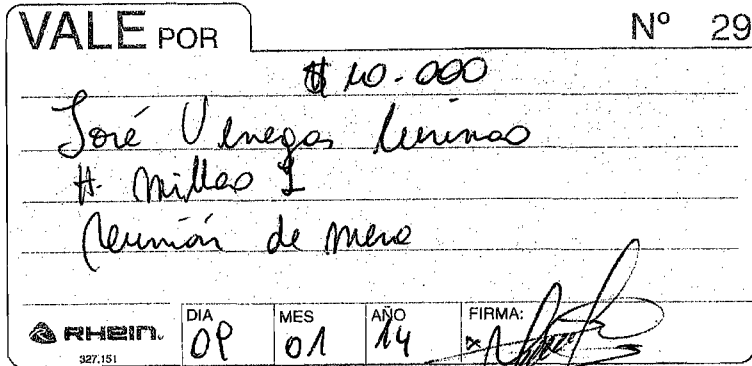 VALE POR Nº 29
$ 10.000
José Venegas
H. Millao I
Reunión de mesa
RHEIN. DIA 09 MES 01 AÑO 14 FIRMA:
327.151